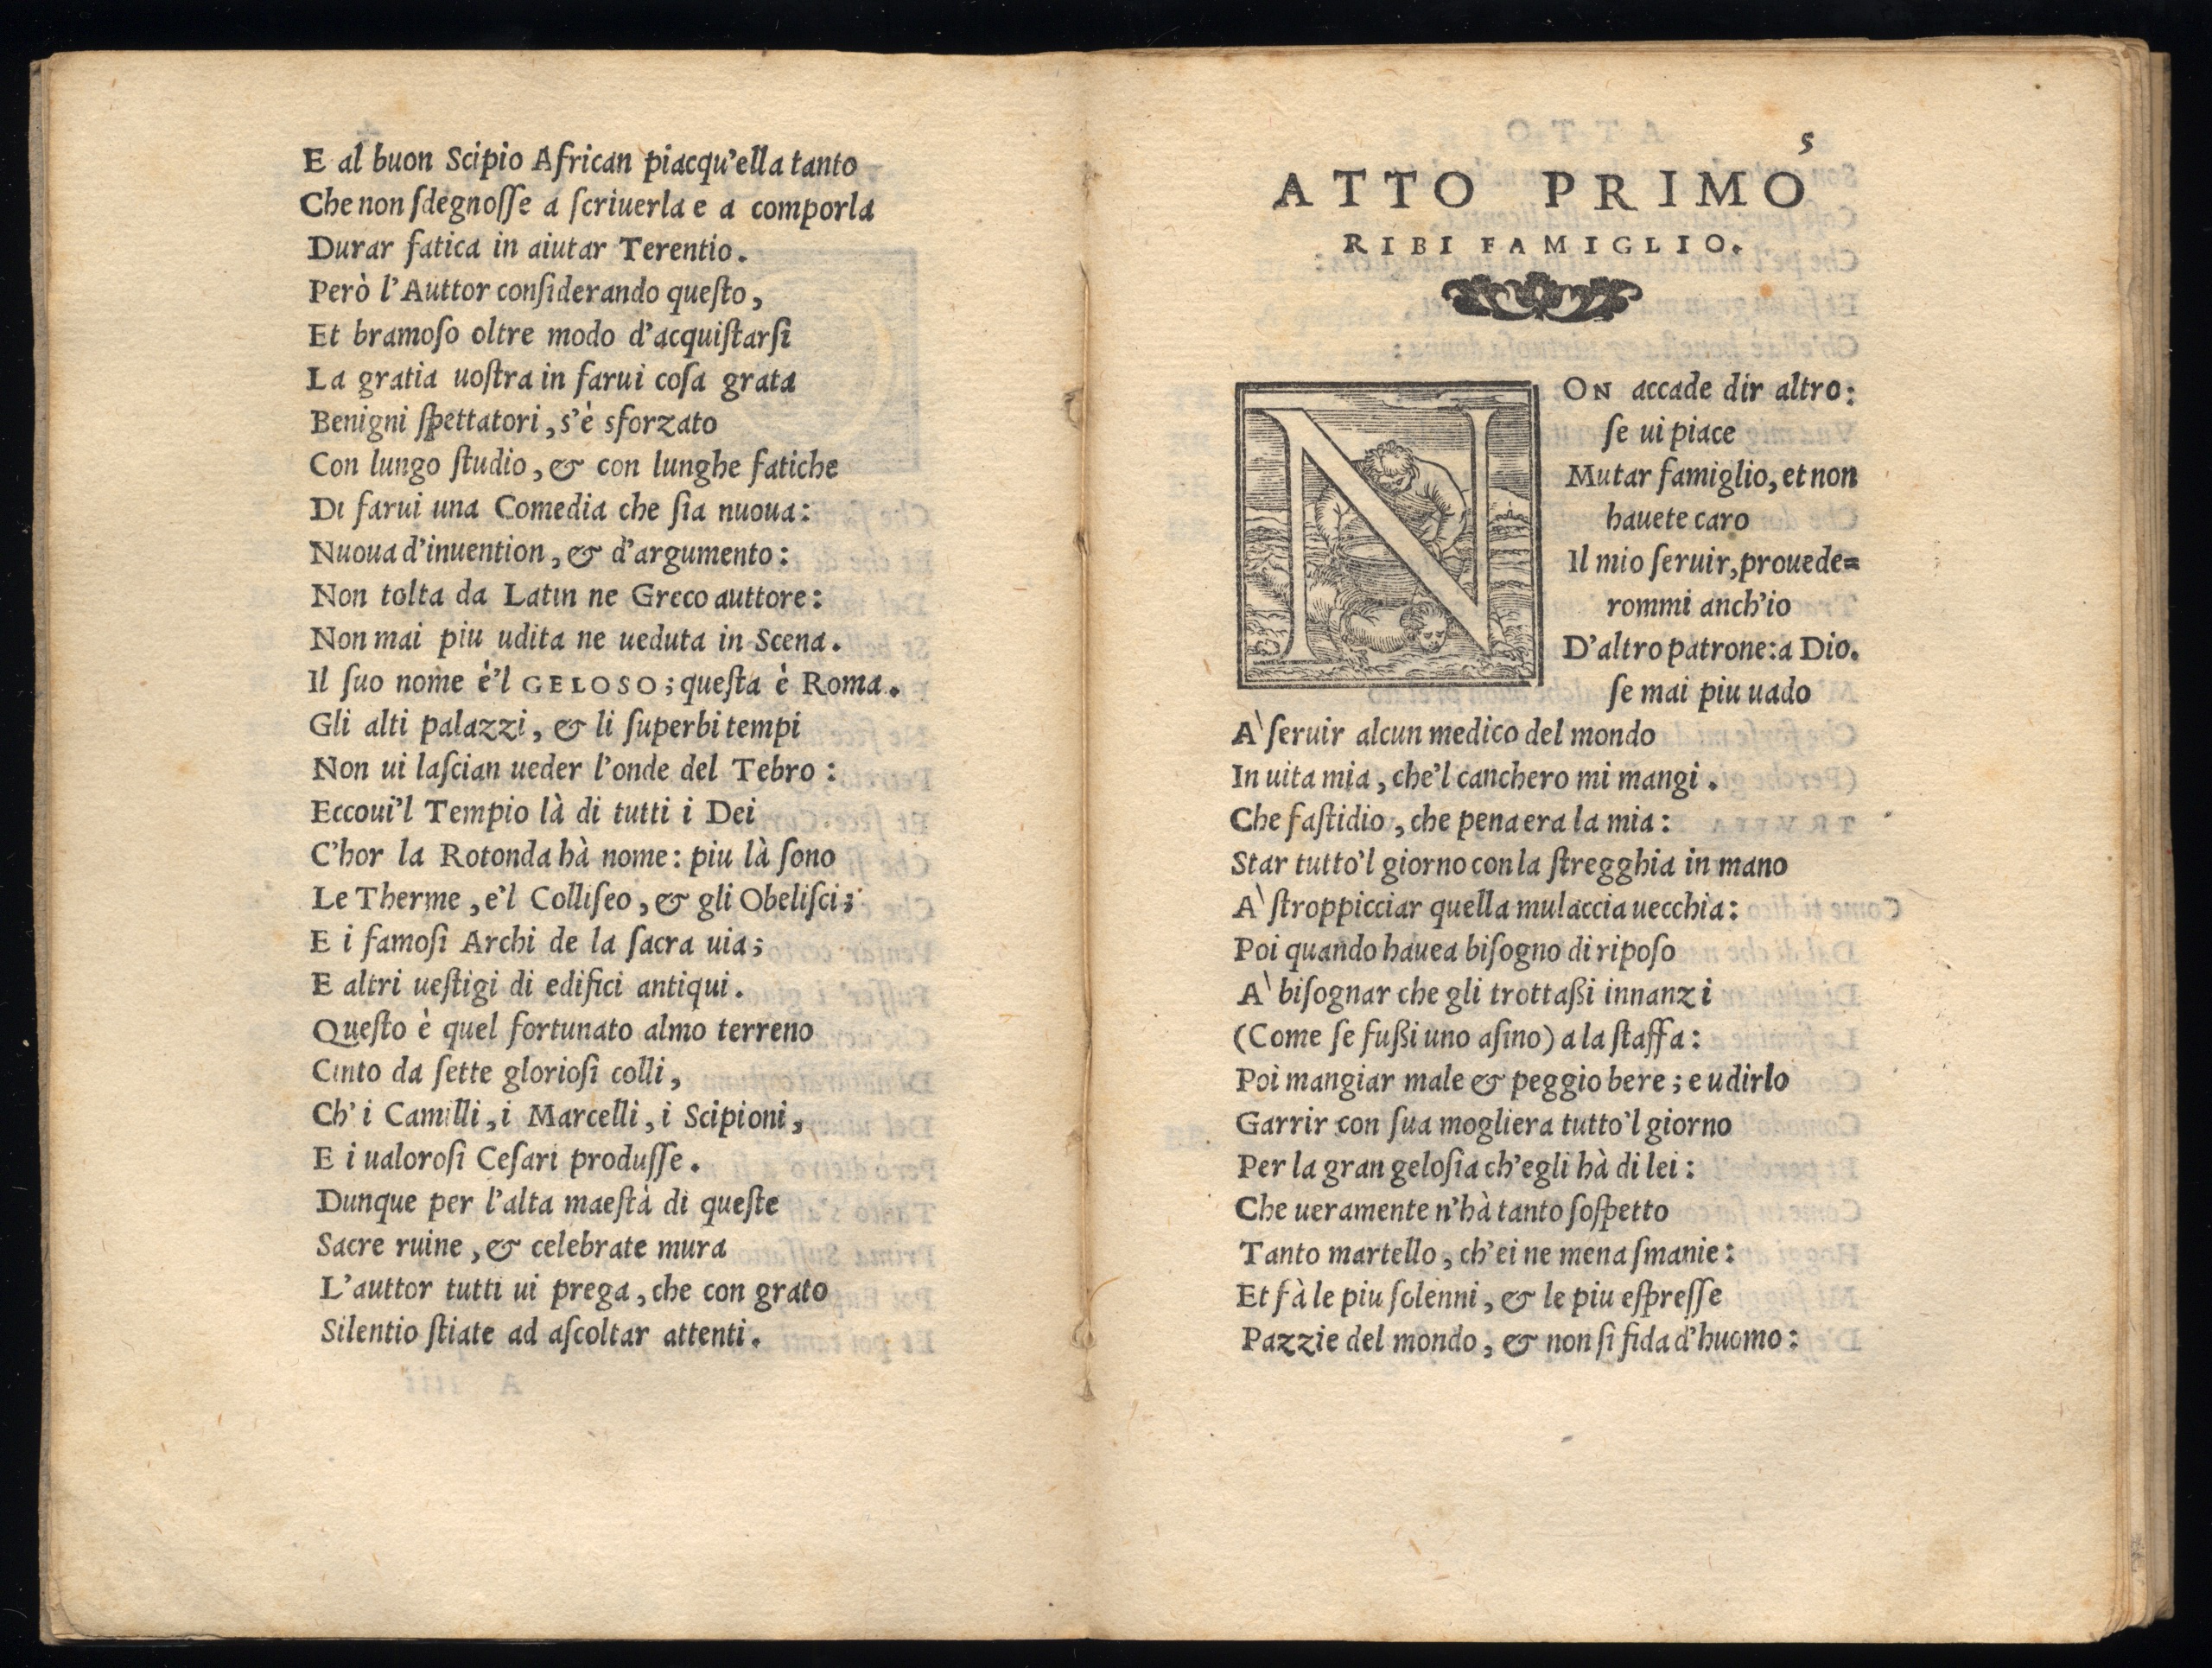 E al buon Scipio African piacqu'ella tanto
Che non ſdegnoſſe a ſcriuerla e a comporla
Durar fatica in aiutar Terentio.
Però l'Auttor conſiderando queſto,
Et bramoſo oltre modo d'acquiſtarſi
La gratia uoſtra in farui coſa grata
Benigni ſpettatori, s'è sforzato
Con lungo ſtudio, & con lunghe fatiche
Di farui una Comedia che ſia nuoua:
Nuoua d'inuention, & d'argumento:
Non tolta da Latin ne Greco auttore:
Non mai piu udita ne ueduta in Scena.
Il ſuo nome è'l GELOSO; queſta è Roma.
Gli alti palazzi, & li ſuperbi tempi
Non ui laſcian ueder l'onde del Tebro:
Eccoui'l Tempio là di tutti i Dei
C'hor la Rotonda hà nome: piu là ſono
Le Therme, e'l Colliſeo, & gli Obeliſci;
E i famoſi Archi de la ſacra uia;
E altri ueſtigi di edifici antiqui.
Queſto è quel fortunato almo terreno
Cinto da ſette glorioſi colli,
Ch'i Camilli, i Marcelli, i Scipioni,
E i ualoroſi Ceſari produſſe.
Dunque per l'alta maeſtà di queſte
Sacre ruine, & celebrate mura
L'auttor tutti ui prega, che con grato
Silentio ſtiate ad aſcoltar attenti.
5
ATTO PRIMO
RIBI FAMIGLIO.
NON accade dir altro:
ſe ui piace
Mutar famiglio, et non
hauete caro
Il mio ſeruir, prouede=
rommi anch'io
D'altro patrone: a Dio.
ſe mai piu uado
A' ſeruir alcun medico del mondo
In uita mia, che'l canchero mi mangi.
Che faſtidio, che pena era la mia:
Star tutto'l giorno con la ſtregghia in mano
A' ſtroppicciar quella mulaccia uecchia:
Poi quando hauea biſogno di ripoſo
A' biſognar che gli trottaßi innanzi
(Come ſe fußi uno aſino) a la ſtaffa:
Poi mangiar male & peggio bere; e udirlo
Garrir con ſua mogliera tutto'l giorno
Per la gran geloſia ch'egli hà di lei:
Che ueramente n'hà tanto ſoſpetto
Tanto martello, ch'ei ne mena ſmanie:
Et fà le piu ſolenni, & le piu eſpreſſe
Pazzie del mondo, & non ſi fida d'huomo: